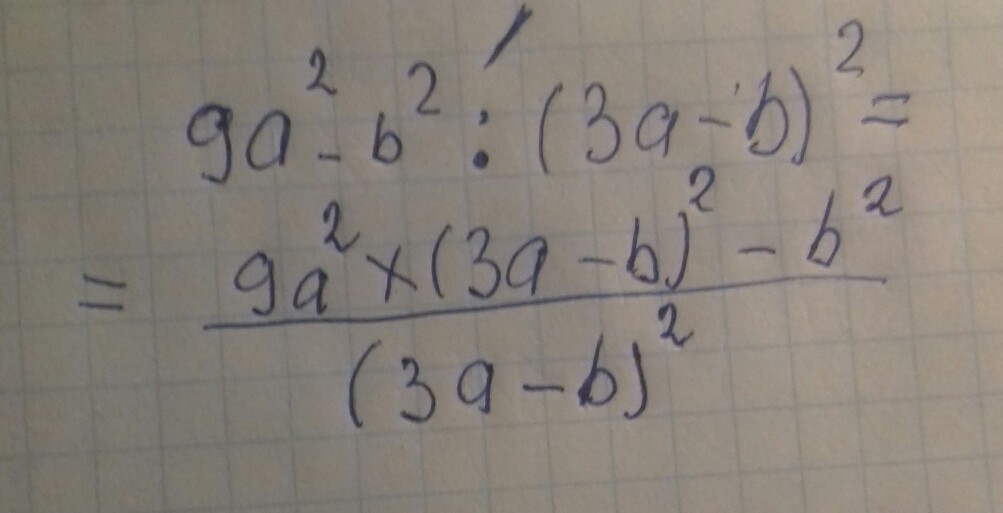 9a² - b² : (3a - b)² =
= \frac{9a² × (3a - b)² - b²}{(3a - b)²}